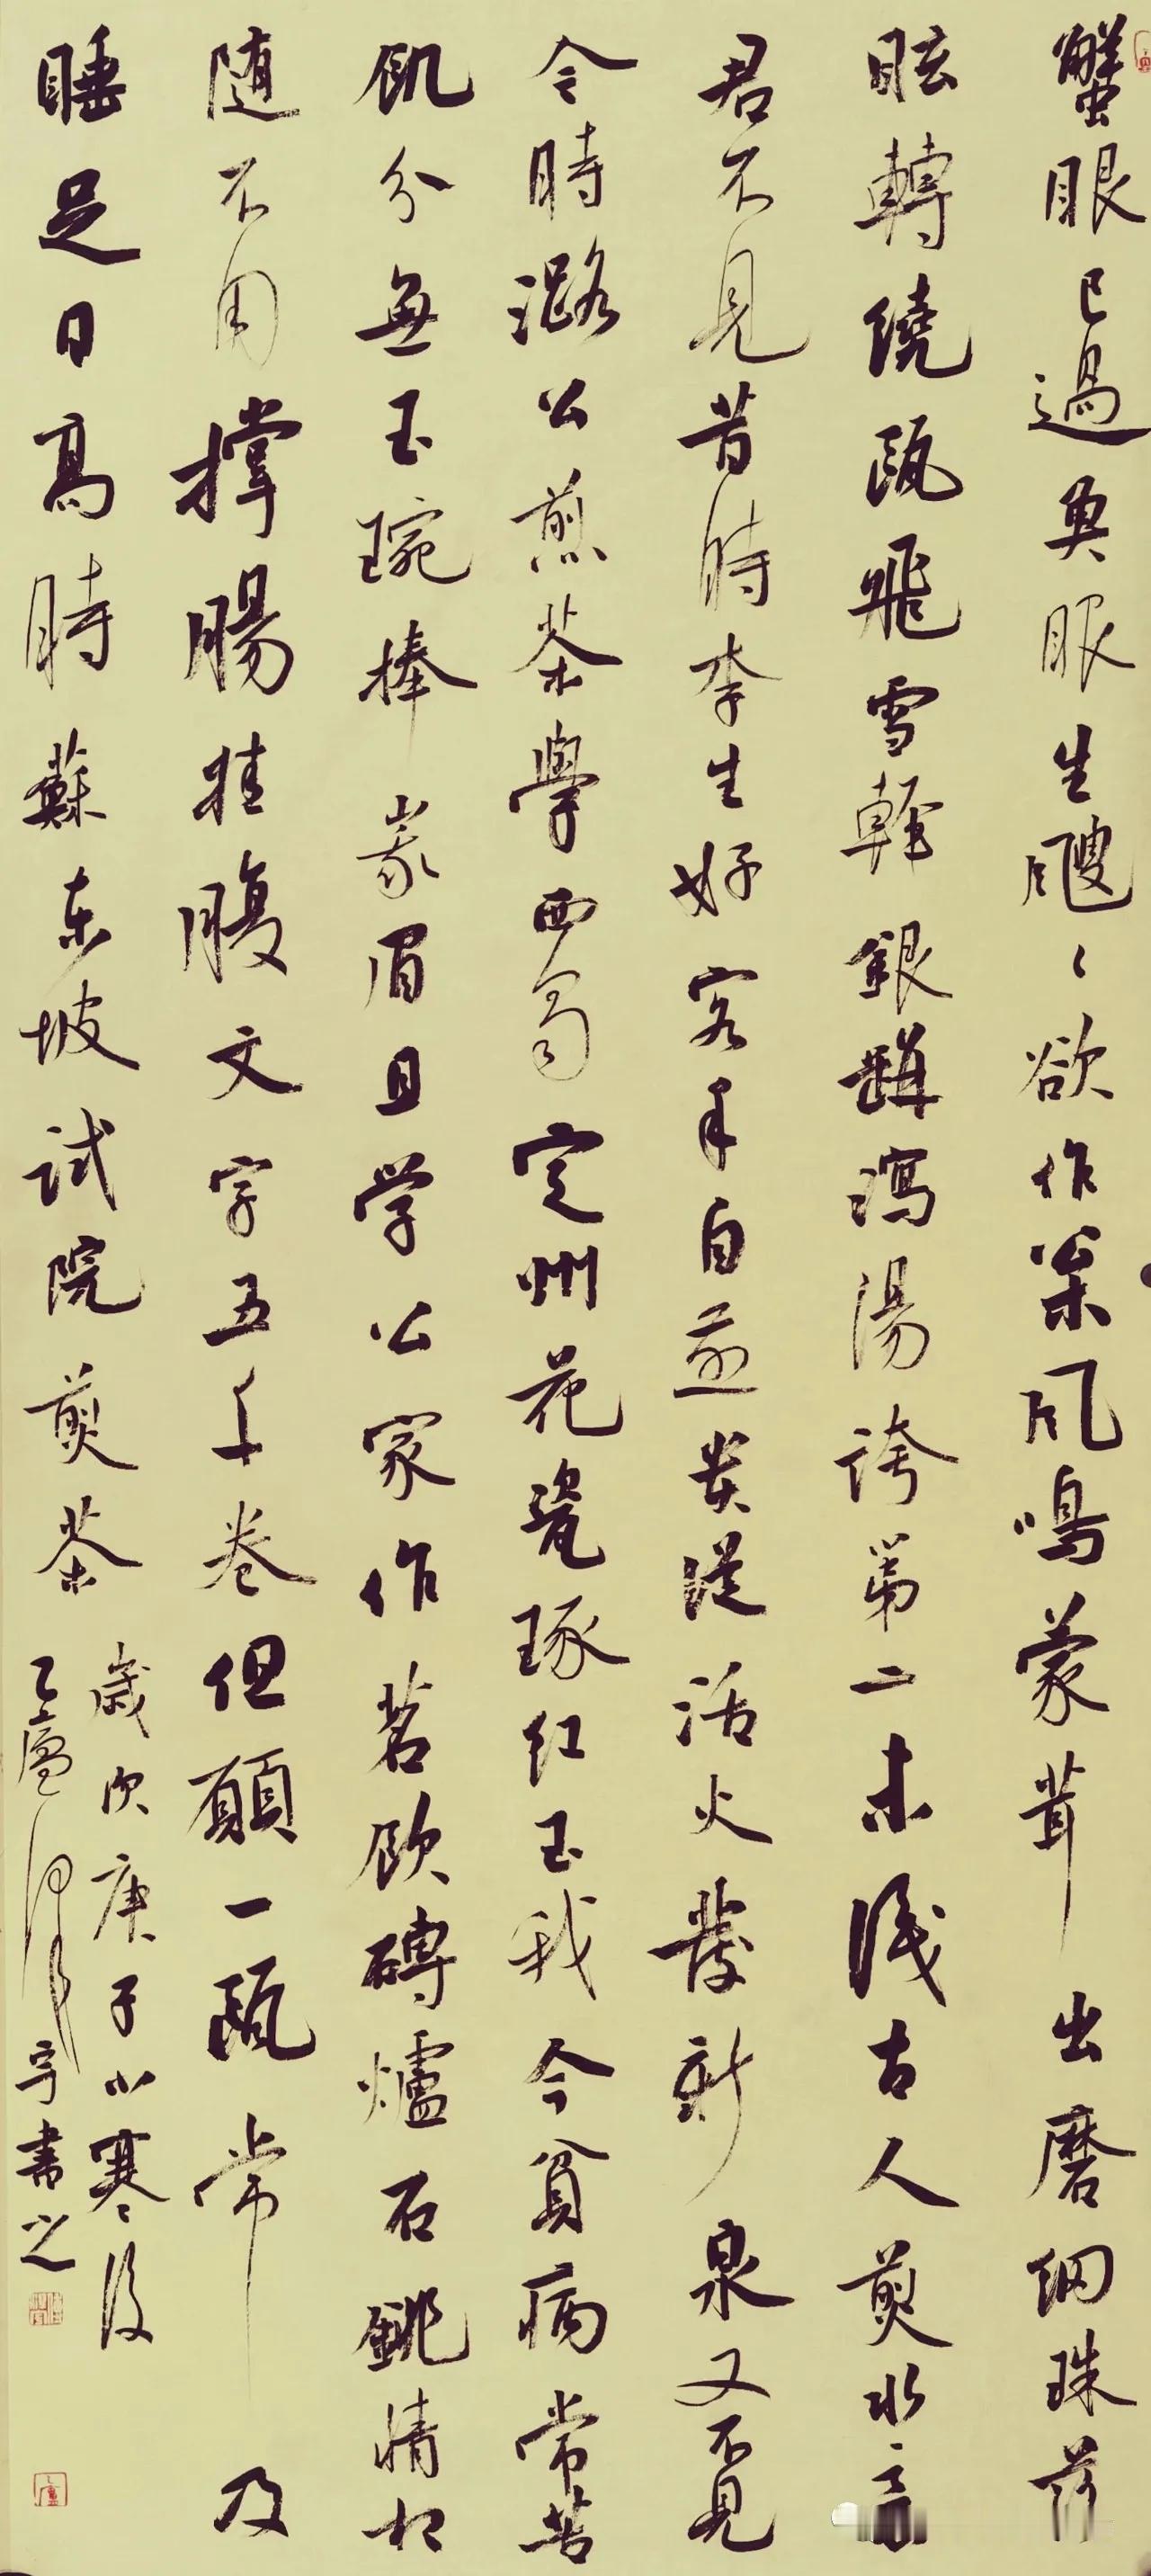 蟹眼已過魚眼生颼〻欲作松風鳴蒙茸出磨細珠落
眩轉繞甌飛雪輕銀缾瀉湯誇第二未識古人煎水意
君不見昔時李生好客手自煎貴從活火發新泉又不見
今時潞公煎茶學西蜀定州花瓷琢红玉我今貧病常苦
飢分無玉琬捧峩眉且学公家作茗飲磚爐石銚情相
随不用撑腸拄腹文字五千卷但願一甌常及
睡足日高時蘇东坡试院煎茶
歲次庚子小寒後
乙廬宇書之